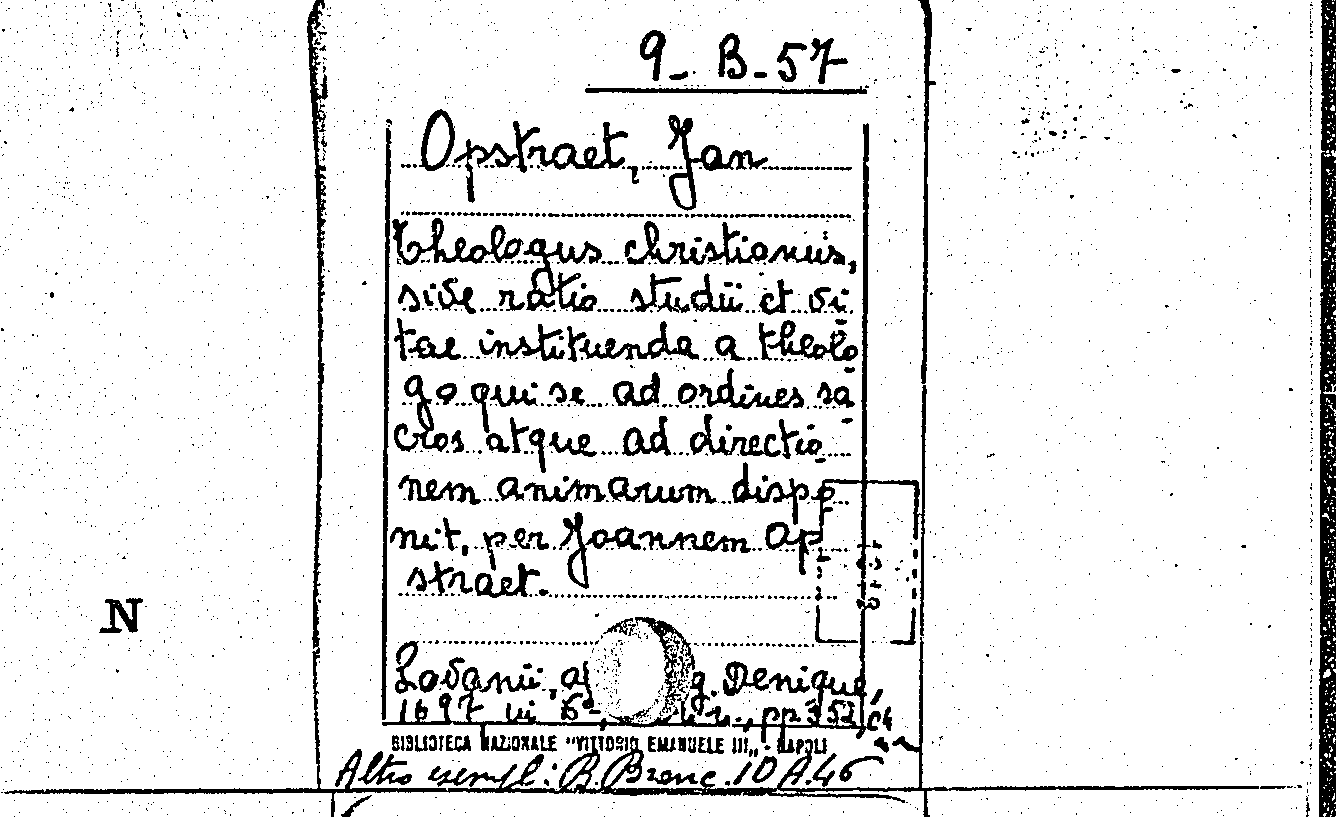 9-B-57
Opstraet, Jan
Theologus christianus,
sive ratio studii et vi-
tae instituenda a theolo-
go qui se ad ordines sa-
cros atque ad directio-
nem animarum dispo-
nit, per Joannem Op-
straet.
N
Lovanii, g. Denique,
1697 in pp 352,
BIBLIOTECA NAZIONALE "VITTORIO EMANUELE III" - NAPOLI
Altro esempl: B. Branc. 10 A.46